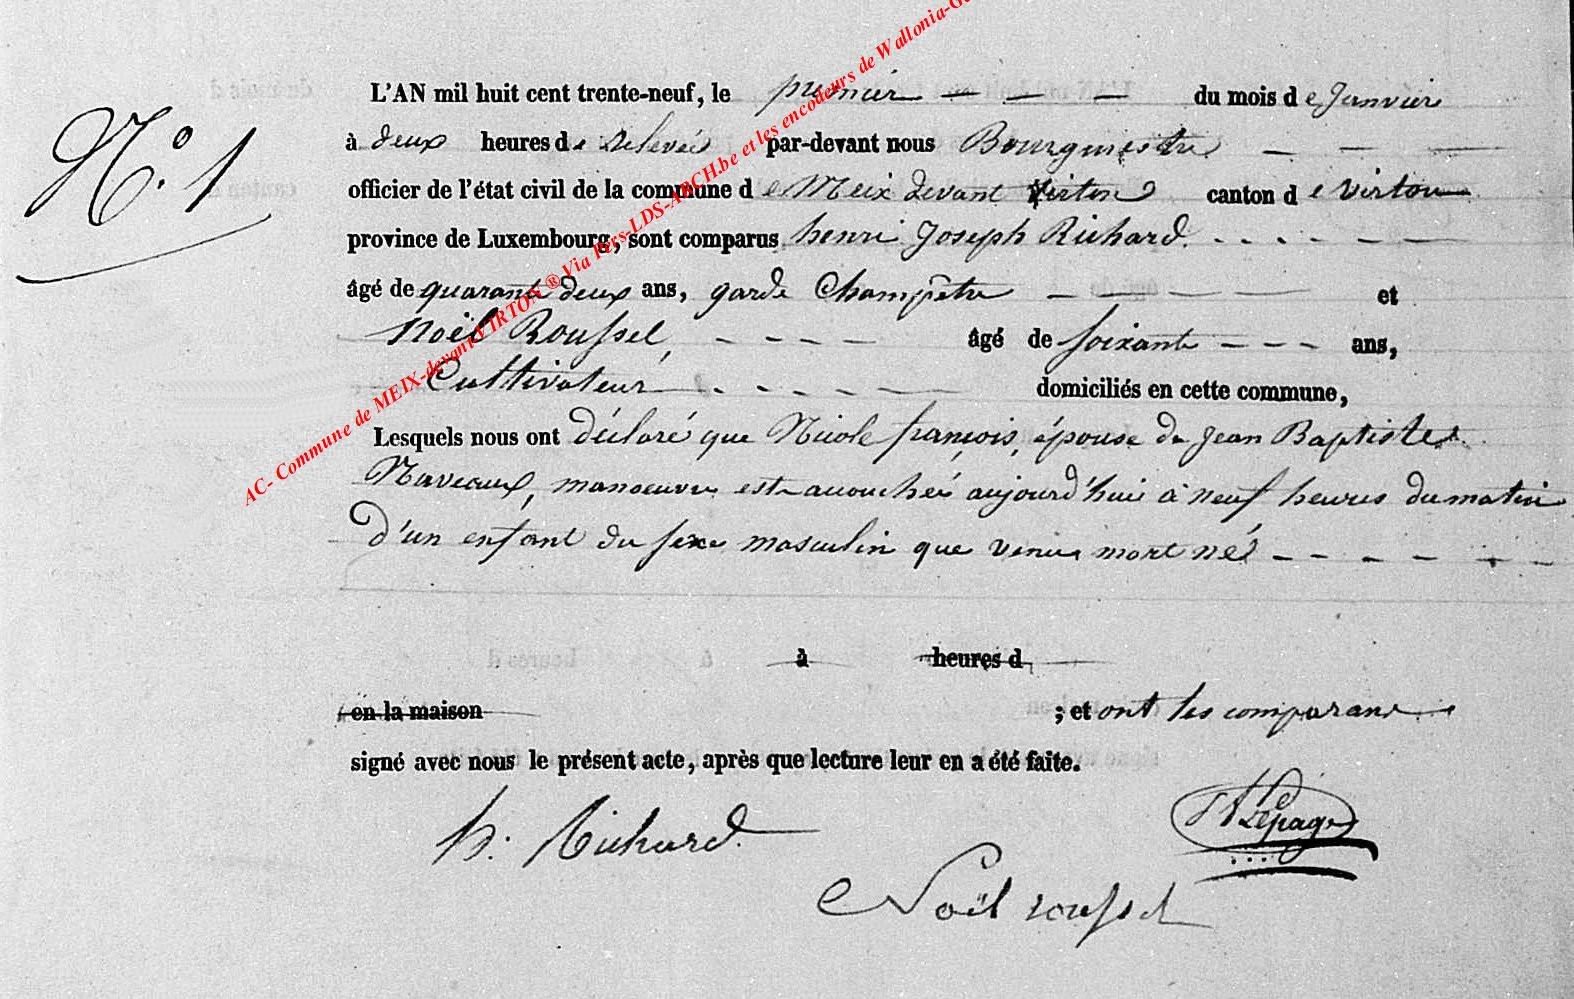 N.° 1
L'AN mil huit cent trente-neuf, le premier — — — du mois de Janvier
à deux heures de relevée par-devant nous Bourgmestre — — —
officier de l'état civil de la commune de Meix devant Virton canton de Virton
province de Luxembourg, sont comparus henri Joseph Richard. - - - - - -
âgé de quarante deux ans, garde Champêtre — — — et
Noël Roussel, - - - - âgé de soixante - - - ans,
Cultivateur - - - - - domiciliés en cette commune,
Lesquels nous ont déclaré que Nicole françois, épouse de Jean Baptiste
Naveaux, manoeuvre est accouchée aujourd'hui à neuf heures du matin
D'un enfant du sexe masculin que venue mort né - - - - - -
à heures d
en la maison ; et ont les comparans
signé avec nous le présent acte, après que lecture leur en a été faite.
h. Richard
Lepage
Noël roussel
AC- Commune de MEIX-devant-VIRTON ® Via Pers-LDS-ARCH.be et les encodeurs de Wallonia-G